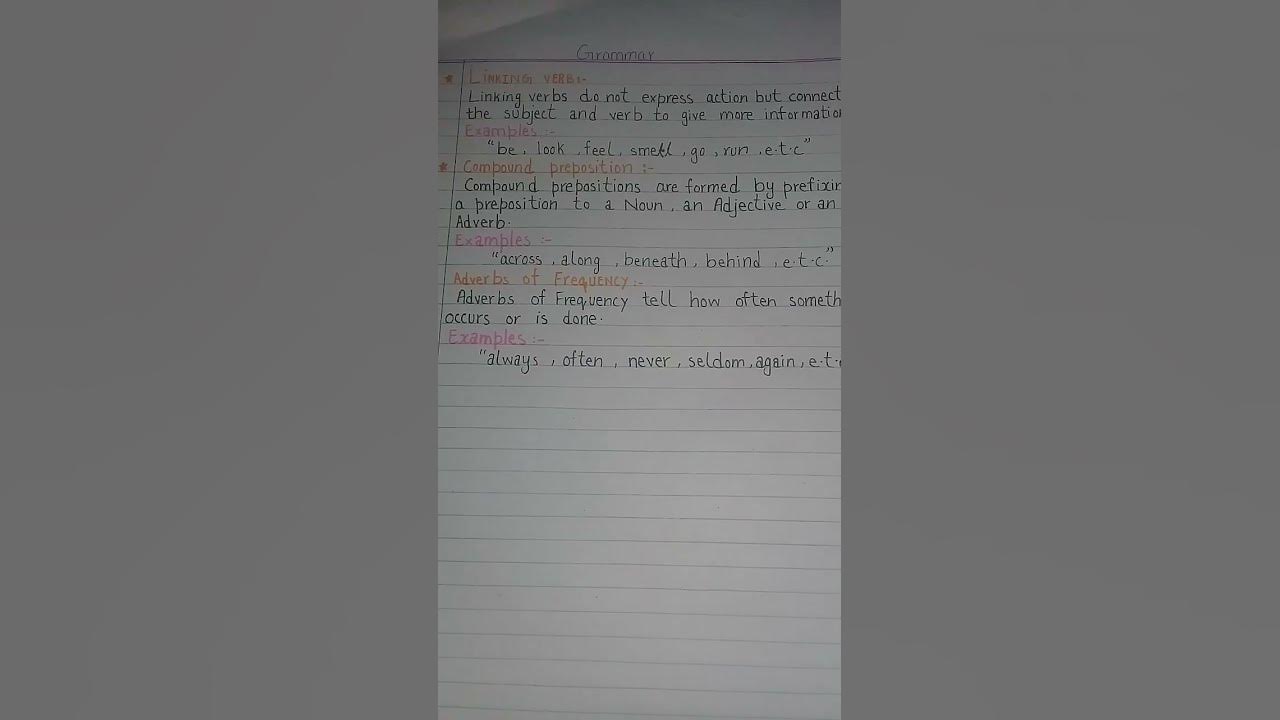 Grammar
* LINKING VERB:-
Linking verbs do not express action but connect
the subject and verb to give more informatio
Examples :-
"be, look, feel, smell, go, run, e.t.c"
* Compound preposition :-
Compound prepositions are formed by prefixin
a preposition to a Noun, an Adjective or an
Adverb.
Examples :-
"across, along, beneath, behind, e.t.c."
Adverbs of FREQUENCY:-
Adverbs of Frequency tell how often someth
occurs or is done.
Examples :-
"always, often, never, seldom, again, e.t.c